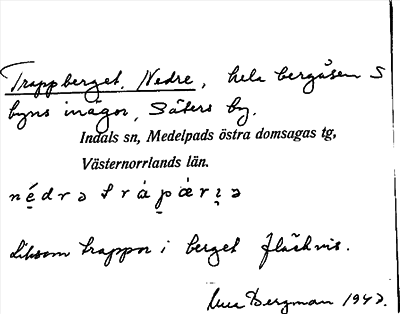 Trappberget, Nedre, hela bergåsen S
byns inägor, Säters by.
Indals sn, Medelpads östra domsagas tg,
Västernorrlands län.
Liksom trappor i berget fläckvis.
Bergman 1943.